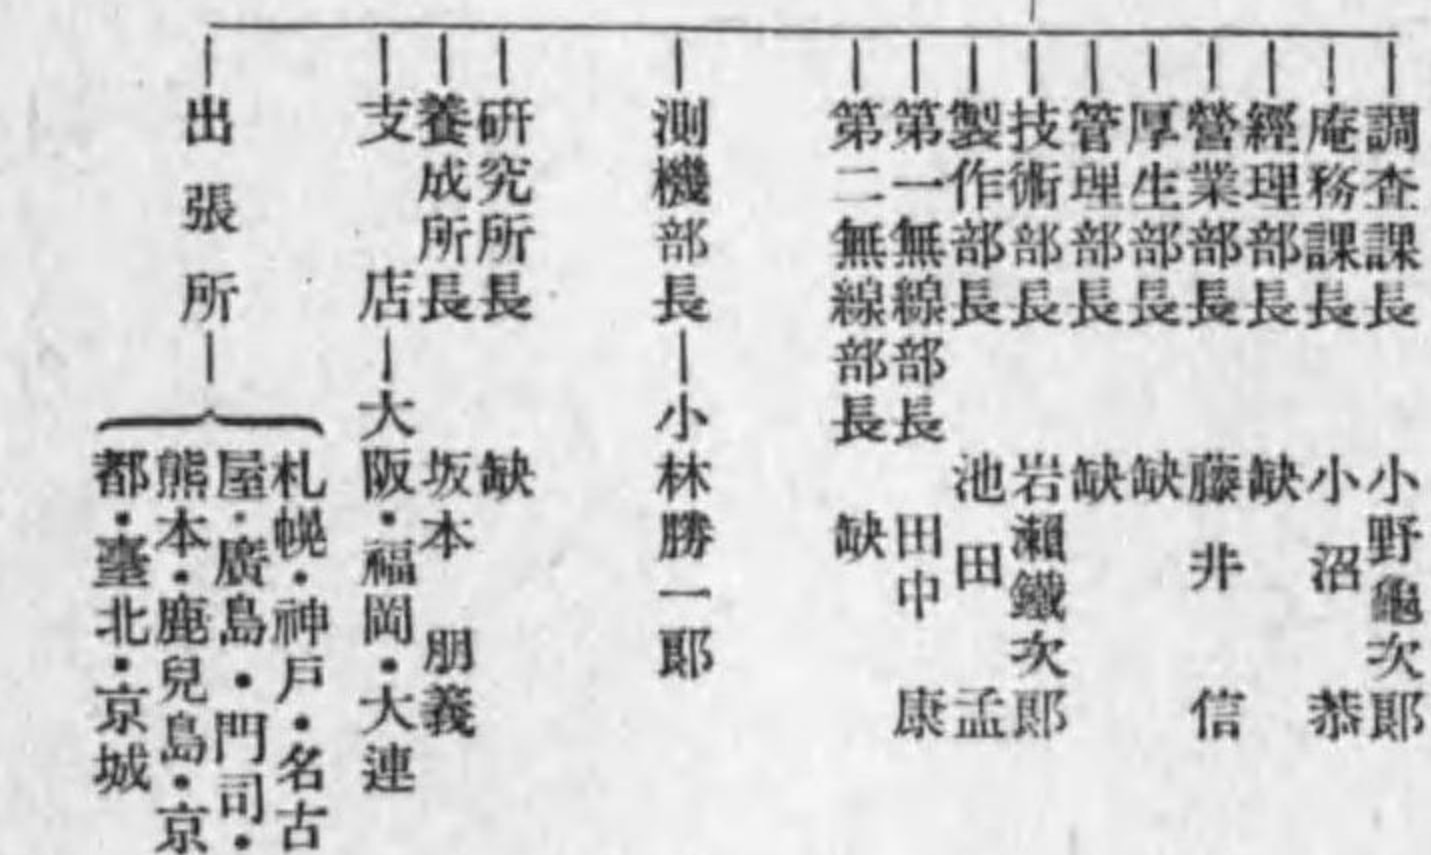 調査課長 小野龜次郎
庵務課長 小沼恭
經理部長 缺
營業部長 藤井信
厚生部長 缺
管理部長 缺
技術部長 岩瀨鐵次郎
製作部長 池田孟
第一無線部長 田中康
第二無線部長 缺
測機部長―小林勝一郎
研究所長 缺
養成所長 坂本朋義
支店―大阪・福岡・大連
出張所―
札幌・神戶・名古
屋・廣島・門司・
熊本・鹿兒島・京
都・臺北・京城